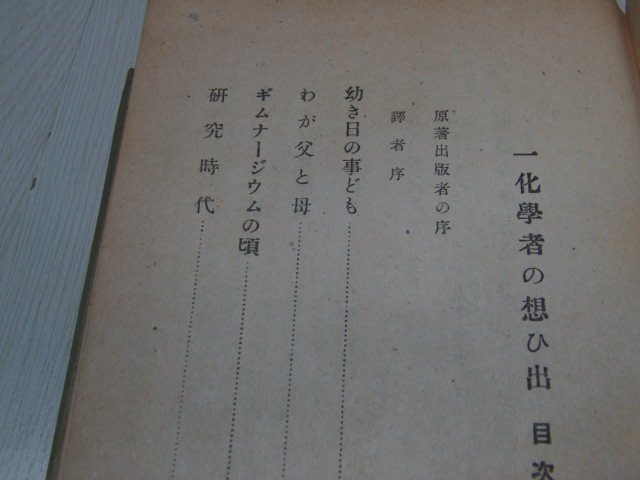 一化學者の想ひ出 目次
原著出版者の序
譯者序
幼き日の事ども
わが父と母
ギムナージウムの頃
研究時代